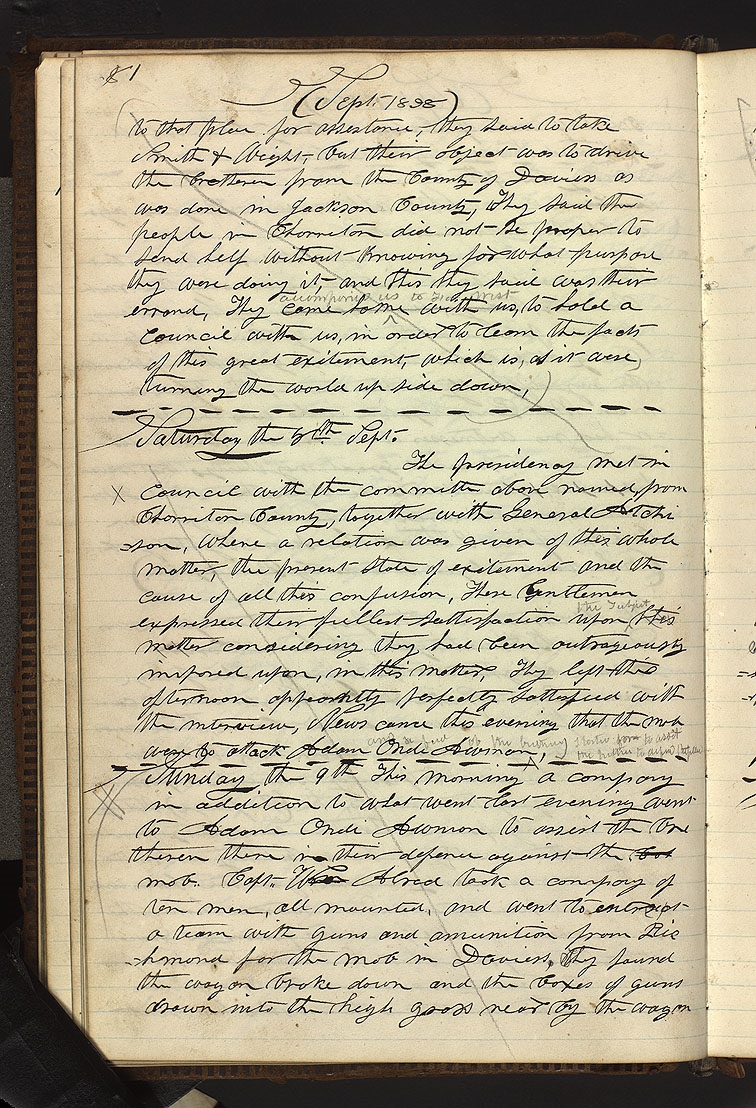 81
(Sept. 1838)
to that place for assestance, they said to take
Smith & Wright, but their object was to drive
the bretheren from the County of Daviess as
was done in Jackson County, They said the
people in Chorriton did not se proper to
send help without knowing for what purpose
they were doing it, and this they said was their
accompanied us to
errand, They come home with us, to hold a
council with us, in order to learn the facts
of this great exitement, which is, as it were,
turning the world up side down,
Saturday the 8th Sept.
The presidency met in
Council with the committe above named, from
Chorriton County, together with General Atchi
=son, where a relation was given of this whole
matter, the present state of exitement and the
cause of all this confusion, These Gentlemen
the subject
expressed their fullest satisfaction upon this
matter considering they had been outrageously
imposed upon, in this matter, They left this
afternoon apparently perfectly satisfied with
the interview, News came this evening that the mob
and a few of the
were to attack Adam Ondi Awman,
Sunday the 9th This morning a company
in addition to what went last evening went
to Adam Ondi Awman to assist the bre
theren there in their defence against the
mob. Capt. Wm Alred took a company of
ten men, all mounted, and went to
a team with guns and amunition from Ric
=hmond for the mob in Daviess, they found
the wagon broke down and the boxes of guns
drawn into the high grass near by the wagon